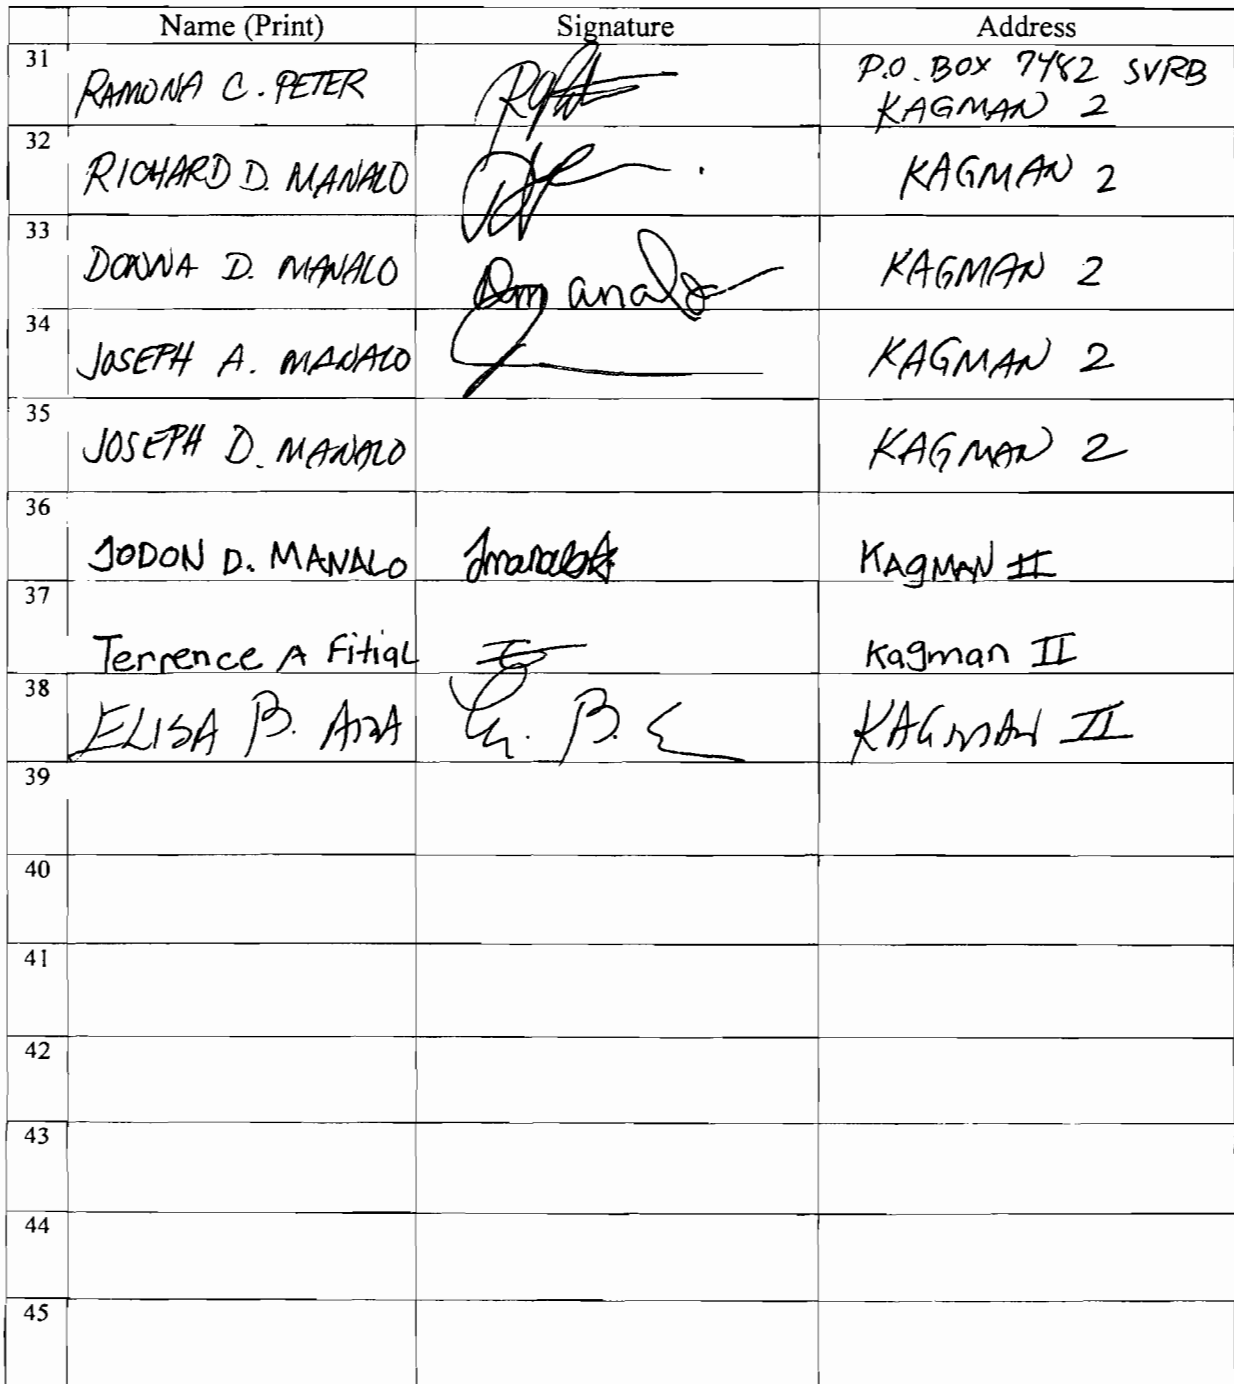 Name (Print) Signature Address
31 RAMONA C. PETER P.O. BOX 7482 SVRB
KAGMAN 2
32 RICHARD D. MANALO KAGMAN 2
33 DONNA D. MANALO Dmanalo KAGMAN 2
34 JOSEPH A. MANALO KAGMAN 2
35 JOSEPH D. MANALO KAGMAN 2
36 JODON D. MANALO KAgMAN II
37 Terrence A Fitial Kagman II
38 ELISA B. KAGMAN II
39
40
41
42
43
44
45